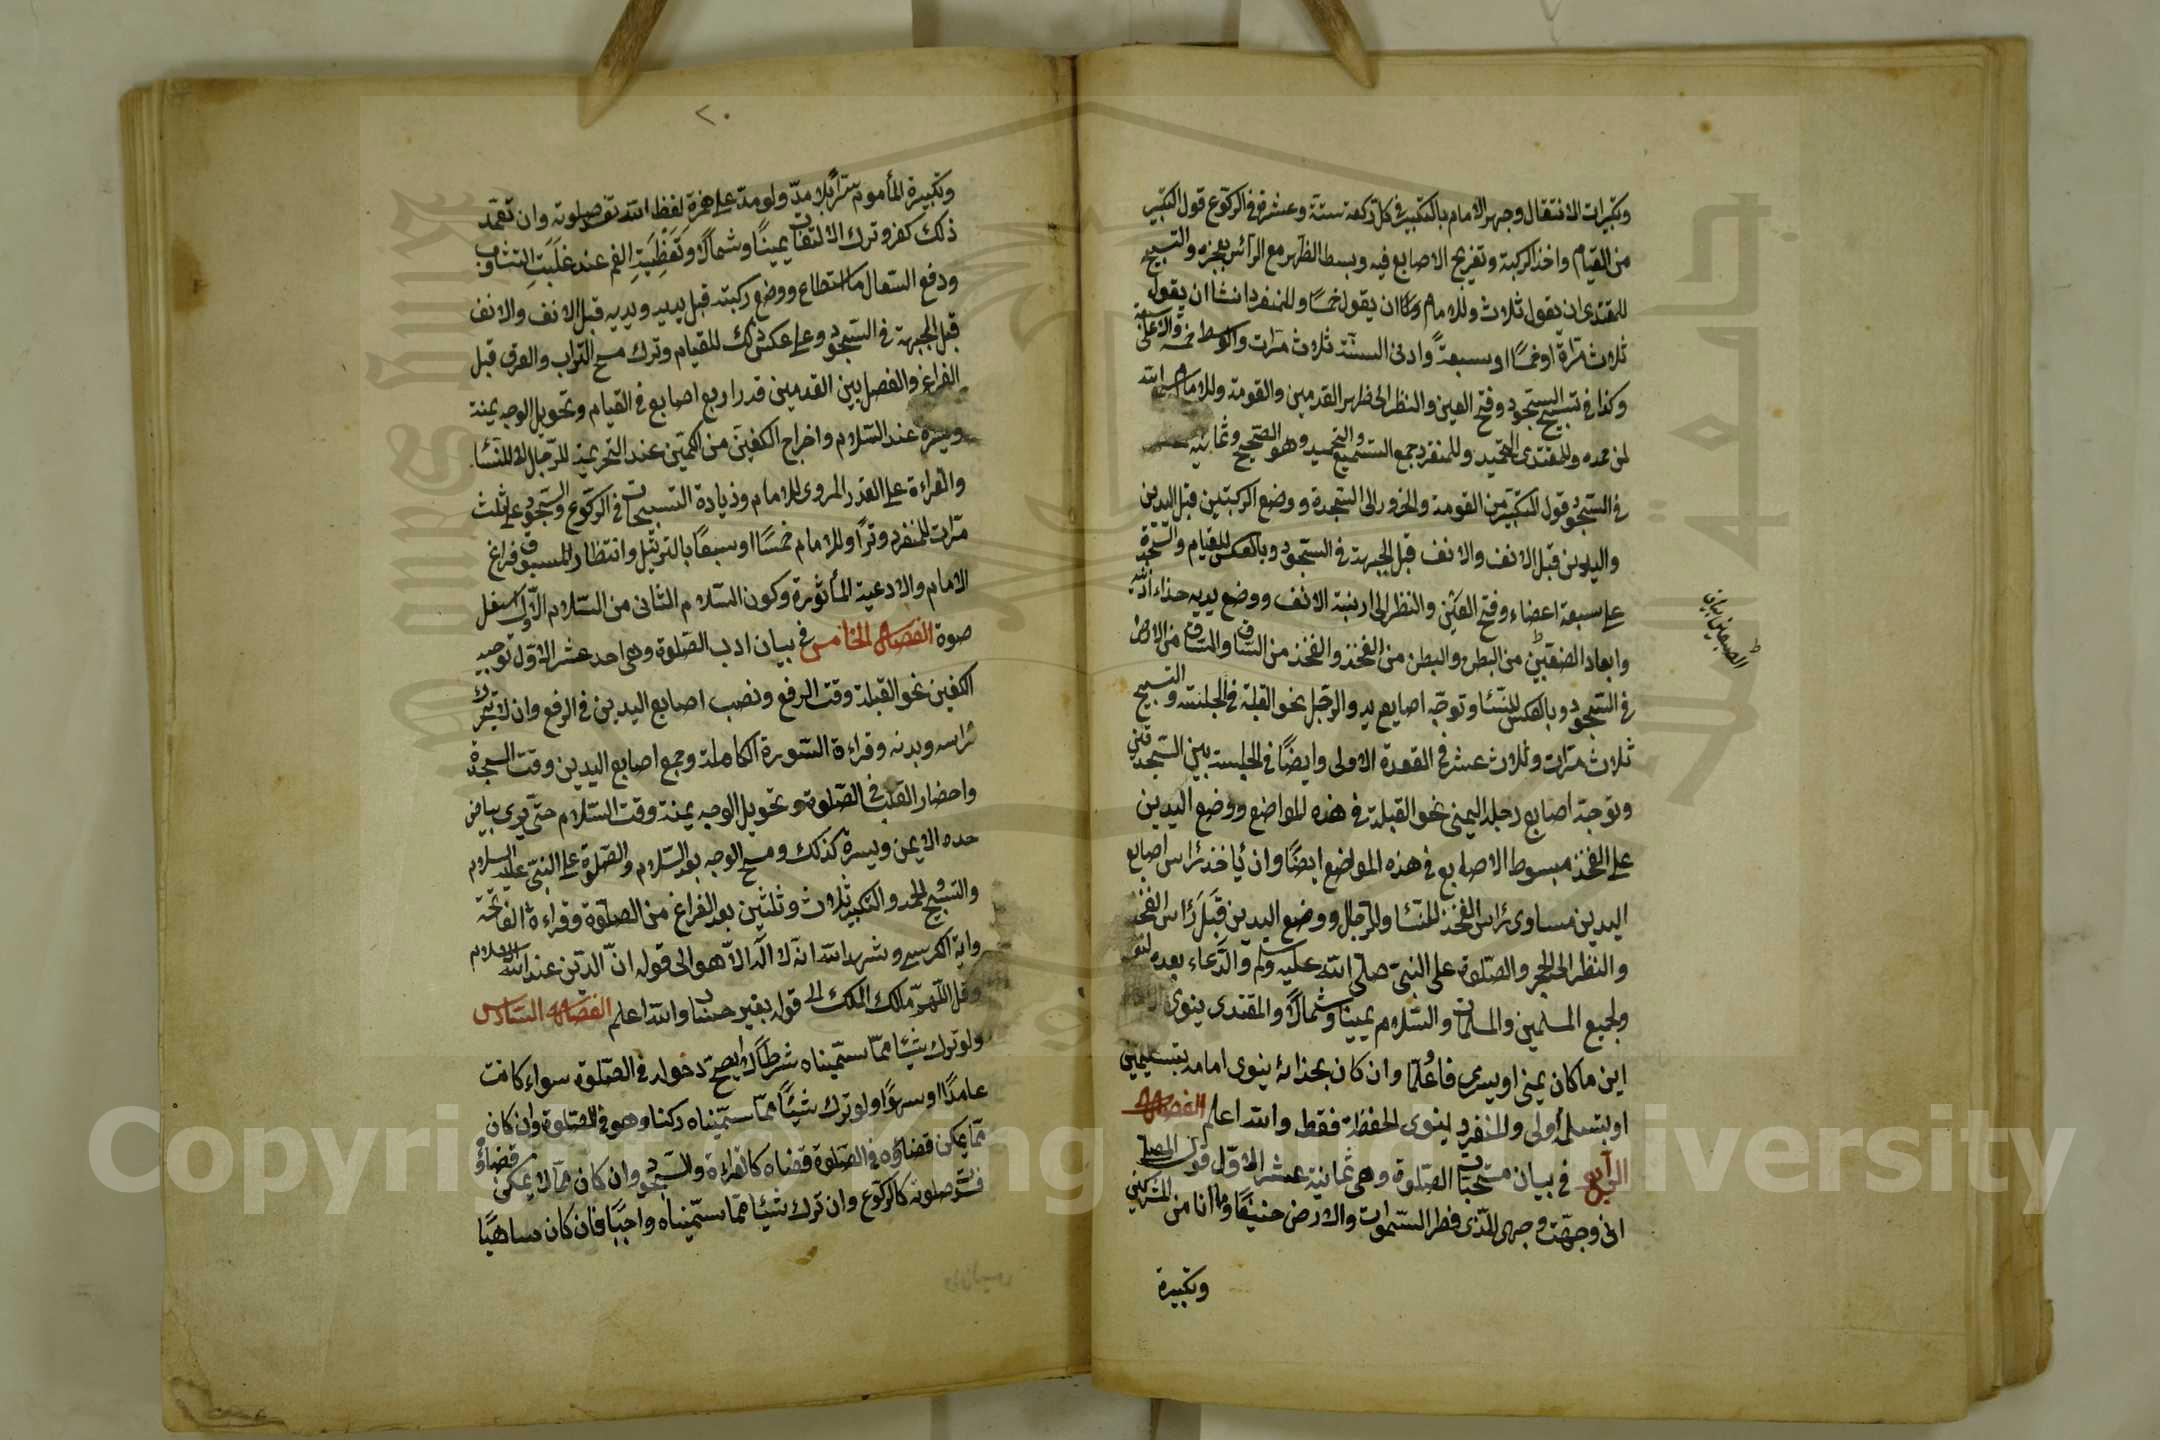 وتكبيرات الانتقال وجهر الامام بالتكبير في كل ركعة ستة وعشر في الركوع قول التكبير
من القيام واخذ الركبة وتفريج الاصابع فيه وبسط الظهر مع الرأس بعجزه والتسبيح
للمقتدى ان يقول ثلاث وللامام ان يقول خمسا وللمنفرد انشا ان يقول
ثلاث مرة او خمسًا او سبعة وادنى السنة ثلاث مرات والاوسط خمسة والاعلى
وكذا في تسبيح السجود وفتح العين والنظر الى ظهر القدمين والقومة وللامام سمع الله
لمن حمده وللمقتدى التحميد وللمنفرد جمع التسميع والتحميد وهو الصحيح وثمانية
في السجود قول التكبير من القومة والخرور الى السجدة ووضع الركبتين قبل اليدين
واليدين قبل الانف والانف قبل الجبهة في السجود وبالعكس للقيام والسجدة
على سبعة اعضاء وفتح العين والنظر الى ارنبة الانف ووضع يديه حذاء اذنيه
وابعاد الضبعين من البطن والبطن من الفخذ والفخذ من الساق والساق من الارض
في السجود وبالعكس للنسا وتوجه اصابع يد والرجل نحو القبلة في الجلسة والتسبيح
ثلاث مرات وثلاث عشر في القعدة الاولى وايضًا في الجلسة بين السجدتين
وتوجه اصابع رجله اليمنى نحو القبلة في هذه المواضع ووضع اليدين
على الفخذ مبسوط الاصابع في هذه المواضع ايضًا وان يأخذ رأس اصابع
اليدين مساوى رأس الفخذ للنسا وللرجل ووضع اليدين قبل رأس الفخذ
والنظر الى الحجر والصلوة على النبي صلى الله عليه وسلم والدعاء بعده
ولجميع المسلمين والمسلمات والسلام يمينا وشمالا والمقتدى ينوى
اين ما كان يمنى او يسرى فاعلم وان كان بحذائه ينوى امامه بتسليمتين
او بتسلم أولى والمنفرد ينوى الحفظة فقط والله اعلم الفصل
الرابع في بيان مستحبات الصلوة وهي ثمانية عشر الاول قول المصلى
انى وجهت وجهى للذى فطر السموات والارض حنيفًا وما انا من المشركين
وتكبيرة
٢٠
وتكبيرة المأموم سرًا بلا مد ولو مد على همزة لفظ الله تفسد صلوته وان تعمد
ذلك كفر وترك الالتفات يمينًا وشمالًا وتغظية الفم عند غلبة التثاوب
ودفع السعال ما استطاع ووضع ركبته قبل يديه ويديه قبل الانف والانف
قبل الجبهة في السجود وعلى عكس ذلك للقيام وترك مسح التراب والعرق قبل
الفراغ والفصل بين القدمين قدر اربع اصابع في القيام وتحويل الوجه يمنة
ويسرة عند السلام واخراج الكفين من الكمين عند التحريمة للرجال لا للنسا
والقراءة على القدر المروى للامام وزيادة التسبيحات في الركوع والسجود على ثلث
مرات للمنفرد وترًا وللامام خمسًا او سبعًا بالترتيل وانتظار المسبوق فراغ
الامام والادعية المأثورة وكون السلام الثانى من السلام الاول اسفل
صوة الفصل الخامس في بيان ادب الصلوة وهي احد عشر الاول توجيه
الكفين نحو القبلة وقت الرفع ونصب اصابع اليدين في الرفع وان لا يتحرك
رأسه وبدنه وقراءة السورة الكاملة وجمع اصابع اليدين وقت السجدة
واحضار القلب في الصلوة وتحويل الوجه يمنة وقت السلام حتى يرى بياض
خده الايمن ويسرة كذلك ومسح الوجه بعد السلام والصلوة على النبي عليه السلام
والتسبيح والحمد والتكبير ثلاث وثلثين بعد الفراغ من الصلوة وقراءة الفاتحة
واية الكرسي وشهد الله انه لا اله الا هو الى قوله ان الدين عند الله الاسلام
وقل اللهم مالك الملك الى قوله بغير حساب والله اعلم الفصل السادس
ولو ترك شيئا مما سميناه شرطا لا يصح دخوله في الصلوة سواء كانت
عامدًا او سهوًا ولو ترك شيئًا مما سميناه ركنا وهو في الصلوة وان كان
مما يمكن قضاؤه في الصلوة قضاه كالقراءة والسجود وان كان مما لا يمكن قضاؤه
فسد صلوته كالركوع وان ترك شيئا مما سميناه واجبًا فان كان ساهيًا
Copyright © King Saud University